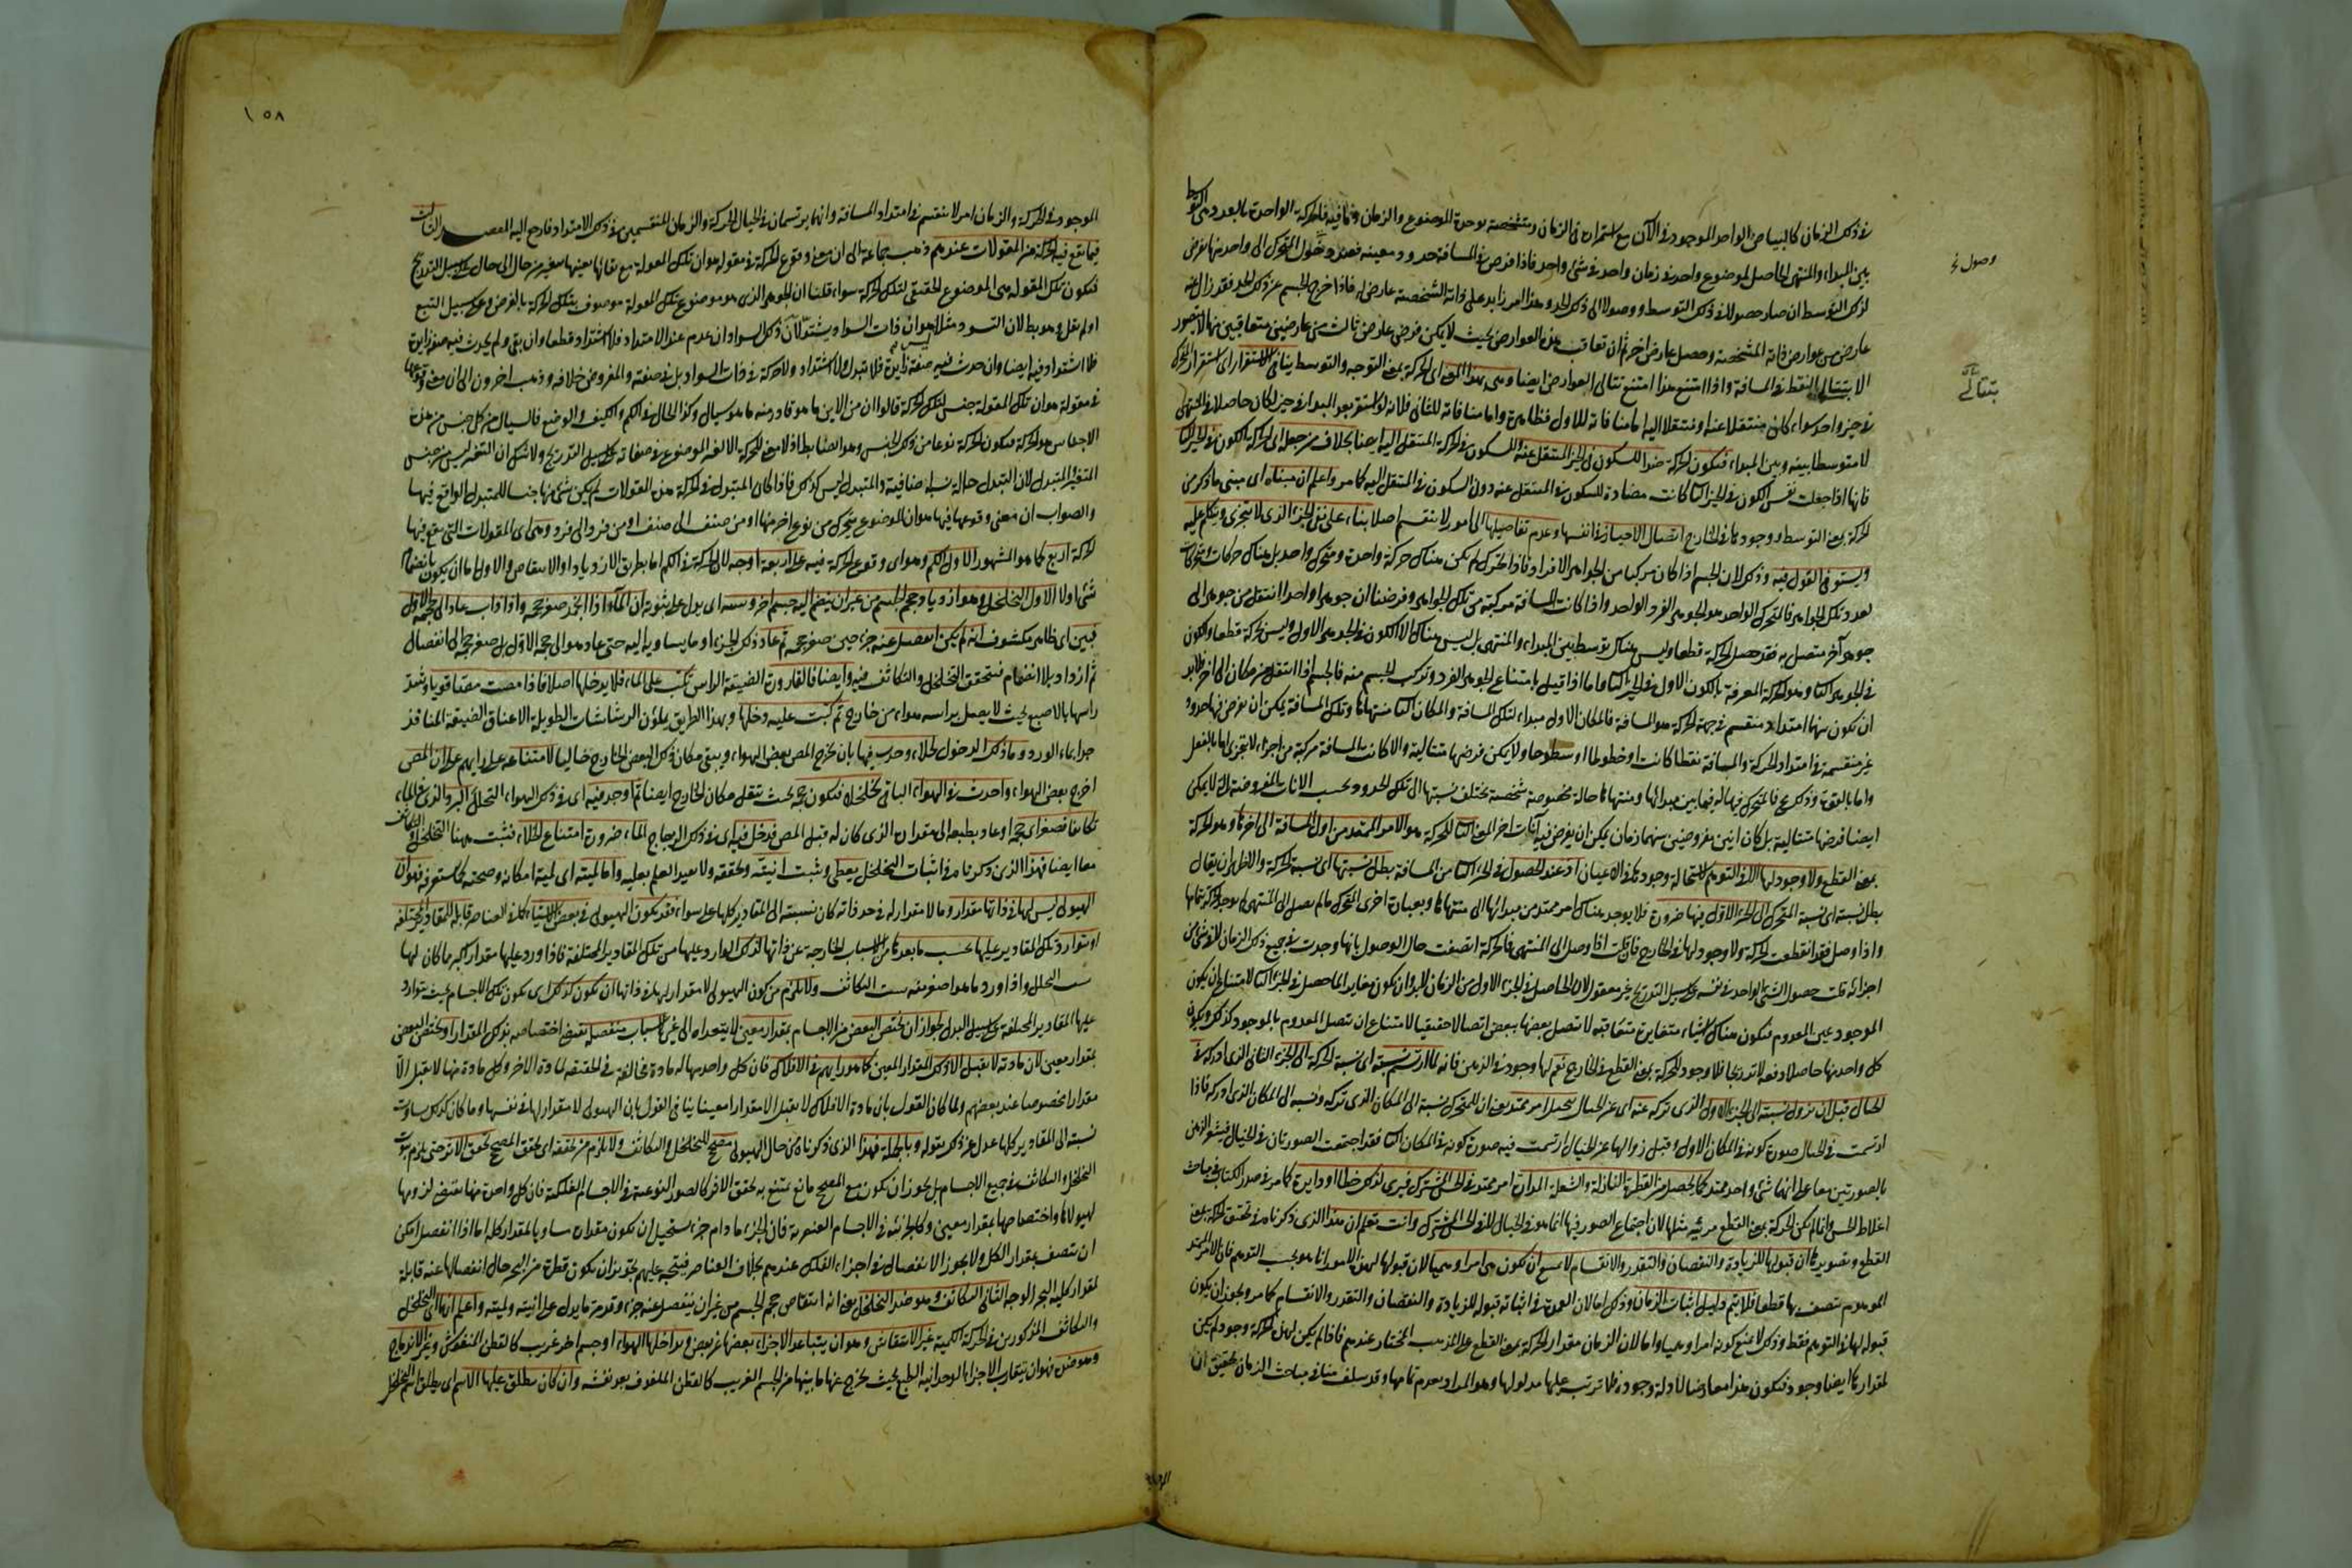 في ذلك الزمان كالبياض الواحد الموجود في الآن مع استمراره في الزمان ومتشخصة بوحدة الموضوع والزمان وما فيه فالحركة الواحدة بالعدد هي التوسط
بين المبداء والمنتهى الحاصل لموضوع واحد في زمان واحد في شئ واحد فاذا فرض في المسافة حدود معينه فعند وصول المتحرك الى واحد منها يعرض
لذلك التوسط ان صار حصولا في ذلك التوسط ووصولا الى ذلك الحد وهذا امر زايد على ذاته الشخصية عارض له فاذا خرج الجسم عن ذلك الحد فقد زال عنه
عارض من عوارض ذاته المشخصة وحصل عارض اخر ثم ان تعاقب هذه العوارض بحيث لا يمكن فرض عارض ثالث بين عارضين متعاقبين منها لا يتصور
الا بتتالي النقط في المسافة واذا امتنع هذا امتنع تتالي العوارض ايضا وهي بهذا المعنى اي الحركة بمعنى التوجه والتوسط ينافي الاستقرار اي استقرار المتحرك
في حيز واحد سواء كان منتقلا عنه او منتقلا اليه اما منافاته للاول فظاهرة واما منافاته للثاني فلانه لو استقر بعد المبداء في حيز لكان حاصلا في المنتهى
لا متوسطا بينه وبين المبداء فتكون الحركة ضدا للسكون في الحيز المنتقل عنه وللسكون في الحركة المنتقل اليه ايضا بخلاف من جعل الحركة الكون في الحيز الثاني
فانها اذا جعلت نفس الكون في الحيز الثاني كانت مضادة للسكون في المنتقل عنه دون السكون في المنتقل اليه كما مر واعلم ان مبناه اي مبنى ما ذكر من
الحركة بمعنى التوسط ووجودها في الخارج اتصال الاحياز في انفسها وعدم تفاصيلها الى امور لا تنقسم اصلا بناء على نفي الجزء الذي لا يتجزى وستتكلم عليه
ويستوفى القول فيه وذلك لان الجسم اذا كان مركبا من الجواهر الافراد فاذا تحرك لم يكن هناك حركة واحدة ومتحرك واحد بل هناك حركات ومتحركات
بعدد تلك الجواهر فالمتحرك الواحد هو الجوهر الفرد الواحد واذا كانت المسافة مركبة من تلك الجواهر وفرضنا ان جوهرا واحدا انتقل من جوهر الى
جوهر آخر متصل به فقد حصل الحركة قطعا وليس هناك توسط بين المبداء والمنتهى بل ليس هناك الا الكون في الجوهر الاول وليس حركة قطعا والكون
في الجوهر الثاني وهو الحركة المعرفة بالكون الاول في الحيز الثاني واما اذا قيل بامتناع الجوهر الفرد وتركب الجسم منه فالجسم اذا انتقل من مكان الى اخر فلابد
ان تكون بينهما امتداد منقسم في جهة الحركة هو المسافة فالمكان الاول مبداء لتلك المسافة والمكان الثاني منتهاها وتلك المسافة يمكن ان يفرض فيها حدود
غير منقسمة في امتداد الحركة والمسافة نقطا كانت او خطوطا او سطوحا ولا يمكن فرضها متتالية والا كانت المسافة مركبة من اجزاء لا تتجزى اما بالفعل
واما بالقوة وذلك مح فالمتحرك فيها له فيما بين مبدائها ومنتهاها حالة مخصوصة شخصية تختلف نسبتها الى تلك الحدود وبحسب الانات المفروضة التي لا يمكن
ايضا فرضها متتالية بل كان انين مفروضين بينهما زمان يمكن ان يفرض فيه آنات اخر المعنى الثاني للحركة هو الامر الممتد من اول المسافة الى اخرها وهو الحركة
بمعنى القطع ولا وجود لها الا في التوهم لاستحالة وجودها في الاعيان اذ عند الحصول في الجزء الثاني من المسافة بطل نسبتها اي نسبة الحركة والاظهر ان يقال
بطل نسبته اي نسبة المتحرك الى الجزء الاول منها ضرورة فلا يوجد هناك امر ممتد من مبدائها الى منتهاها وبعبارة اخرى المتحرك ما لم يصل الى المنتهى لم يوجد الحركة بتمامها
واذا وصل فقد انقطعت الحركة ولا وجود لها في الخارج فان قلت اذا وصل الى المنتهى فالحركة اتصفت حال الوصول بانها وجدت في جميع ذلك الزمان لا في شئ من
اجزائه قلت حصول الشئ الواحد في نفسه على سبيل التدريج غير معقول لان الحاصل في الجزء الاول من الزمان لابد وان يكون مغايرا لما حصل في الجزء الثاني لامتناع ان يكون
الموجود عين المعدوم فيكون هناك اشياء متغايرة متعاقبه لا تتصل بعضها ببعض اتصالا حقيقيا لامتناع ان تتصل المعدوم بالموجود كذلك ويكون
كل واحد منها حاصلا دفعة لا تدريجا فلا وجود للحركة بمعنى القطع في الخارج نعم لها وجود في الذهن فانه لما ارتسم نسبته اي نسبة المتحرك الى الجزء الثاني الذي ادركه في
الخيال قبل ان تزول نسبته الى الجزء الاول الذي تركه عنه اي عن الخيال تخيل امر ممتد يعني ان للمتحرك نسبة الى المكان الذي تركه ونسبة الى المكان الذي ادركه فاذا
ارتسمت في الخيال صورة كونه في المكان الاول وقبل زوالها عن الخيال ارتسمت فيه صورة كونه في المكان الثاني فقد اجتمعت الصورتان في الخيال فيشعر الذهن
بالصورتين معا على انهما شئ واحد ممتد كما يحصل من القطرة النازلة والشعلة المدارة امر ممتد في الحس المشترك فيرى لذلك خطا او دايرة كما مر في صدر الكتاب في مباحث
اغلاط الحس وانما لم تكن الحركة بمعنى القطع مرئية مثلها لان اجتماع الصور فيها انما هو في الخيال لا في الحس المشترك وانت تعلم ان هذا الذي ذكرناه في تحقق الحركة بمعنى
القطع وتصويرها ان قبولها للزيادة والنقصان والتقدر والانقسام لا يمنع ان تكون هي امرا وهميا لان قبولها لهذه الامور انما هو بحسب التوهم فان الامر الممتد
الموهوم يتصف بها قطعا فلا يتم دليل اثبات الزمان وذلك اما لان العمدة في اثباته قبوله للزيادة والنقصان والتقدر والانقسام كما مر ويجوز ان يكون
قبوله لها في التوهم فقط وذلك لا يمنع كونه امرا وهميا واما لان الزمان مقدار الحركة بمعنى القطع على المذهب المختار عندهم فاذا لم يكن لهذه الحركة وجود لم يكن
لمقدارها ايضا وجود فيكون هذا معارضا لادلة وجوده فلا ترتب عليها مدلولها وهو المراد بعدم تمامها وقد سلف منا في مباحث الزمان تحقيق ان
وصول نخ
بتتالي
الموجود
١٥٨
الموجود في الحركة والزمان امر لا ينقسم في امتداد المسافة وانهما يرتسمان في الخيال الحركة والزمان المنقسمين في ذلك الامتداد فارجع اليه المقصد الثالث
فيما يقع فيه الحركة من المقولات عندهم ذهب جماعة الى ان معنى وقوع الحركة في مقولة هو ان تلك المقولة مع بقائها بعينها يتغير من حال الى حال على سبيل التدريج
فتكون تلك المقولة هي الموضوع الحقيقي لتلك الحركة سواء قلنا ان الجوهر الذي هو موضوع تلك المقولة موصوف بتلك الحركة بالعرض وعلى سبيل التبع
او لم نقل وهو بط لان التسود مثلا هو ان ذات السواد يشتد لان ذلك السواد ان عدم عند الاشتداد فلا اشتداد قطعا وان بقي ولم يحدث فيه صفة زايدة
فلا اشتداد فيه ايضا وان حدث فيه صفة زايدة فلا تبدل ولا اشتداد ولا حركة في ذات السواد بل في صفته والمفروض خلافه وذهب اخرون الى ان معنى وقوعها
في مقولة هو ان تلك المقولة جنس لتلك الحركة قالوا ان من الاين ما هو قار ومنه ما هو سيال وكذا الحال في الكم والكيف والوضع فالسيال من كل جنس من هذه
الاجناس هو الحركة فيكون الحركة نوعا من ذلك الجنس وهو ايضا بط اذ لا معنى للحركة الا تغير الموضوع في صفاته على سبيل التدريج ولا شك ان التغير ليس من جنس
المتغير والمتبدل لان التبدل حالة نسبية اضافية والمتبدل ليس كذلك فاذا كان المتبدل في الحركة هذه المقولات لم يكن شئ منها جنسا للتبدل الواقع فيها
والصواب ان معنى وقوعها فيها هو ان الموضوع يتحرك من نوع اخر منها او من صنف الى صنف او من فرد الى فرد وهي اي المقولات التي يقع فيها
الحركة اربع كما هو المشهور الاول الكم وهو اي وقوع الحركة فيه على اربعة اوجه لان الحركة في الكم اما بطريق الازدياد او الانتقاص والاول اما ان يكون بانضمام
شئ اولا الاول التخلخل وهو ازدياد حجم الجسم من غير ان ينضم اليه جسم اخر وسعه اي يدل على ثبوته ان الماء اذا انجمد صغر حجمه واذا ذاب عاد الى حجمه الاول
فبين اي ظاهر مكشوف انه لم يكن انفصل عنه جزء حين صغر حجمه ثم عاد ذلك الجزء او ما يساويه اليه حتى عاد هو الى حجمه الاول بل صغر حجمه بلا انفصال
ثم ازداد بلا انضمام فتتحقق التخلخل والتكاثف فيه وايضا فالقارورة الضيقة الراس تكب على الماء فلا يدخلها اصلا فاذا مصت مصا قويا وشد
راسها بالاصبع بحيث لا يصل براسه هواء من خارج ثم كبت عليه دخلها وبهذا الطريق يملؤن الرشاشات الطويلة الاعناق الضيقة المنافذ
جدا بماء الورد وما ذلك الدخول لخلاء وحدث فيها بان يخرج المص بعض الهواء ويبقى مكان ذلك البعض الخارج خاليا لامتناعه على رايهم بل لان المص
اخرج بعض الهواء واحدث في الهواء الباقي تخلخلا فيكون حجمه بحيث يشغل مكان الخارج ايضا ثم اوجد فيه اي في ذلك الهواء المتخلخل البرد الذي في الماء
تكاثفا فصغر اي حجمه او عاد بطبعه الى مقداره الذي كان له قبل المص فدخل فيه اي في ذلك الزجاج الماء ضرورة امتناع الخلاء فثبت ههنا التخلخل والتكاثف
معا ايضا فهذا الذي ذكرناه في اثبات التخلخل يعطي ويثبت انيته وتحققه ولا يفيد العلم بعليه واما لميته اي لمية امكانه وصحته كما ستعرفه فهو ان
الهيولى ليس لها في ذاتها مقدار وما لا مقدار له في حد ذاته كان نسبته الى المقادير كلها على سواء فقد يكون الهيولى في بعض الاشياء كما في العناصر قابلة للمقادير المختلفة
او تتوارد تلك المقادير عليها بحسب ما يعدها من الاسباب الخارجة عن ذاتها لذلك الوارد عليها من تلك المقادير المختلفة فاذا ورد عليها مقدار اكبر مما كان لها
ثبت التخلخل واذا ورد ما هو اصغر منه ثبت التكاثف ولا يلزم من كون الهيولى لا مقدار لها في ذاتها ان تكون كذلك اي يكون تلك الاجسام بحيث يتوارد
عليها المقادير المختلفة على سبيل البدل لجواز ان يختص البعض من الاجسام بمقدار معين لا يتعداه الى غيره لاسباب منفصلة تقتضي اختصاصه بذلك المقدار او يختص البعض
بمقدار معين لان مادته لا تقبل الا ذلك المقدار المعين كما هو رايهم في الافلاك فان كل واحد منها له مادة مخالفة في الحقيقة لمادة الاخر وكل مادة منها لا تقبل الا
مقدارا مخصوصا عند بعضهم ولما كان القول بان مادة الافلاك لا تقبل الا مقدارا معينا ينافي القول بان الهيولى لا مقدار لها في نفسها وما كان كذلك يساوي
نسبته الى المقادير كلها عدل عن ذلك بقوله وبالجملة فهذا الذي ذكرناه من حال الهيولى مصحح للتخلخل والتكاثف ولا يلزم من تحققه اي تحقق المصحح تحقق الاثر حتى يلزم ثبوت
التخلخل والتكاثف في جميع الاجسام بل يجوز ان يكون مع المصحح مانع يمتنع به تحقق الاثر كالصور النوعية في الاجسام الفلكية فان كل واحدة منها تقتضي لزومها
لهيولاها واختصاصها بمقدار معين وكالجزئية في الاجسام العنصرية فان الجزء ما دام جزءا يستحيل ان يكون مقداره مساويا لمقدار كله اما اذا انفصل امكن
ان يتصف بمقدار الكل ولا يجوز الانفصال في اجزاء الفلك عندهم بخلاف العناصر فيتجه عليهم تجويز ان يكون قطرة من البحر حال انفصالها عنه قابلة
لمقدار كلية البحر الوجه الثاني التكاثف وهو ضد التخلخل يعني انه انتقاص حجم الجسم من غير ان ينفصل عنه جزء وقد مر ما يدل على انيته ولميته واعلم انهما اي التخلخل
والتكاثف المذكورين في الحركة الكمية غير الانتفاش وهو ان يتباعد الاجزاء بعضها عن بعض ويداخلها الهواء او جسم اخر غريب كالقطن المنفوش وغير الاندماج
وهو ضده فهو ان يتقارب الاجزاء الوحدانية الطبع بحيث يخرج عنها ما بينها من الجسم الغريب كالقطن الملفوف بعد نفشه وان كان يطلق عليها الاسم اي يطلق اسم التخلخل